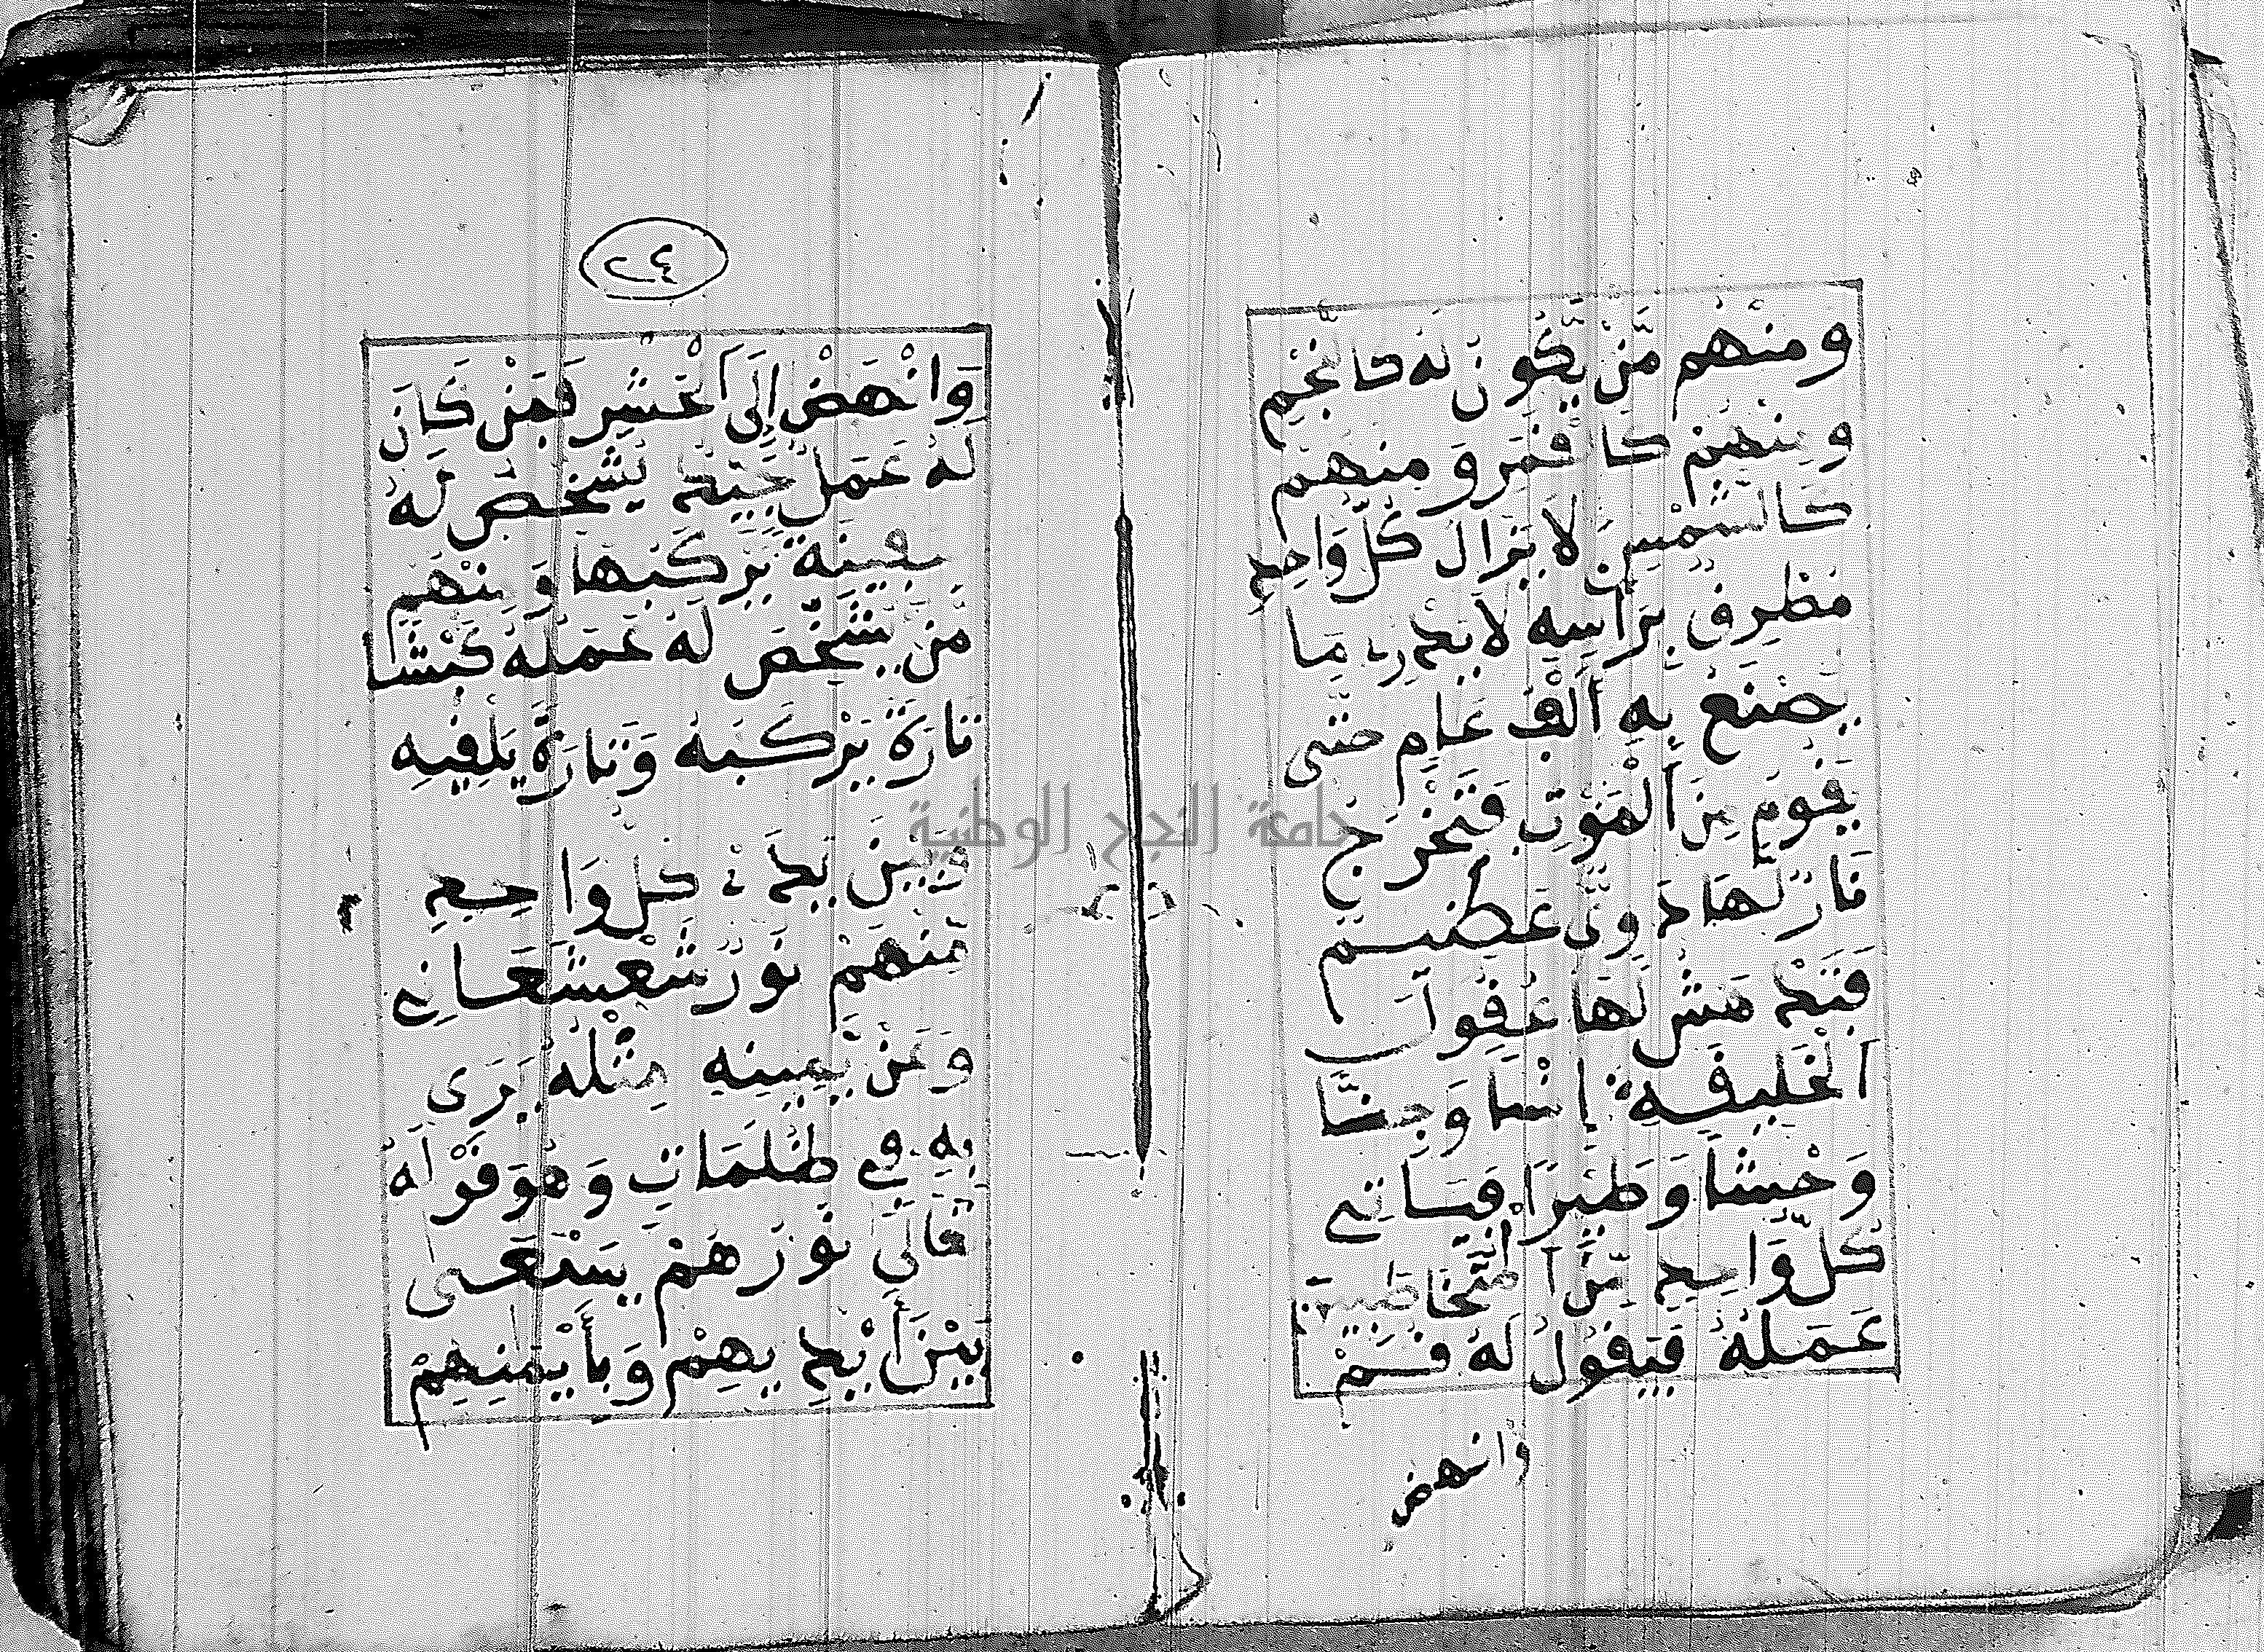 ومنهم مَّن يَّكُون له كالنجم
ومنهم كالقمر ومنهم
كالشمس لا يزال كلّ واحد
مطرف براسه لا يدرى ما
يصنع به ألف عام حتى
يقوم من الموت فتخرج
نار لها دوىّ عظيم
فتدهش لها عقول
الخليفة إنسا وجنّا
وحشا وطيرا فياتى
كلّ واحد مّن
عمله فيقول له قم
وانهض
٢٤
وانهض إلى الحشر فمن كان
له عمل جيد يشخص له
سفينة يركبها ومنهم
من يشخص له عمله كبشا
تارة يركبه وتارة يلفيه
وبين يدي كل واحد
منهم نور شعشعاني
وعن يمينه مثله يرى
به في ظلمات وهو قوله
تعالى نورهم يسعى
بين أيديهم وبأيمنهم
جامعة النجاح الوطنية